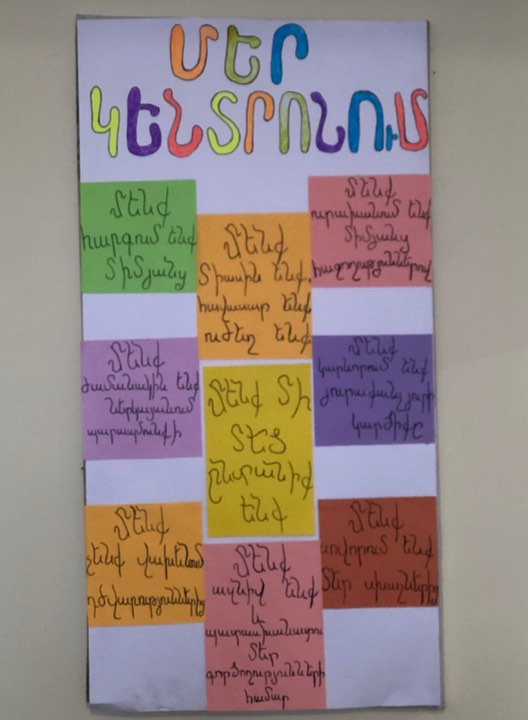 ՄԵՐ
ԿԵՆՏՐՈՆՈՒՄ
Մենք
հարգում ենք
միմյանց
Մենք
միասին ենք,
հավասար ենք
ուժեղ ենք
Մենք
ուրախանում ենք
միմյանց
հաջողություններով
Մենք
ժամանակին ենք
ներկայանում
պարապմունքի
Մենք մի
մեծ
ընտանիք
ենք
Մենք
կարևորում ենք
յուրաքանչյուրի
կարծիքը
Մենք
չենք վախենում
դժվարություններից
Մենք
ազնիվ ենք
և
պատասխանատու
մեր
գործողությունների
համար
Մենք
սովորում ենք
մեր սխալներից